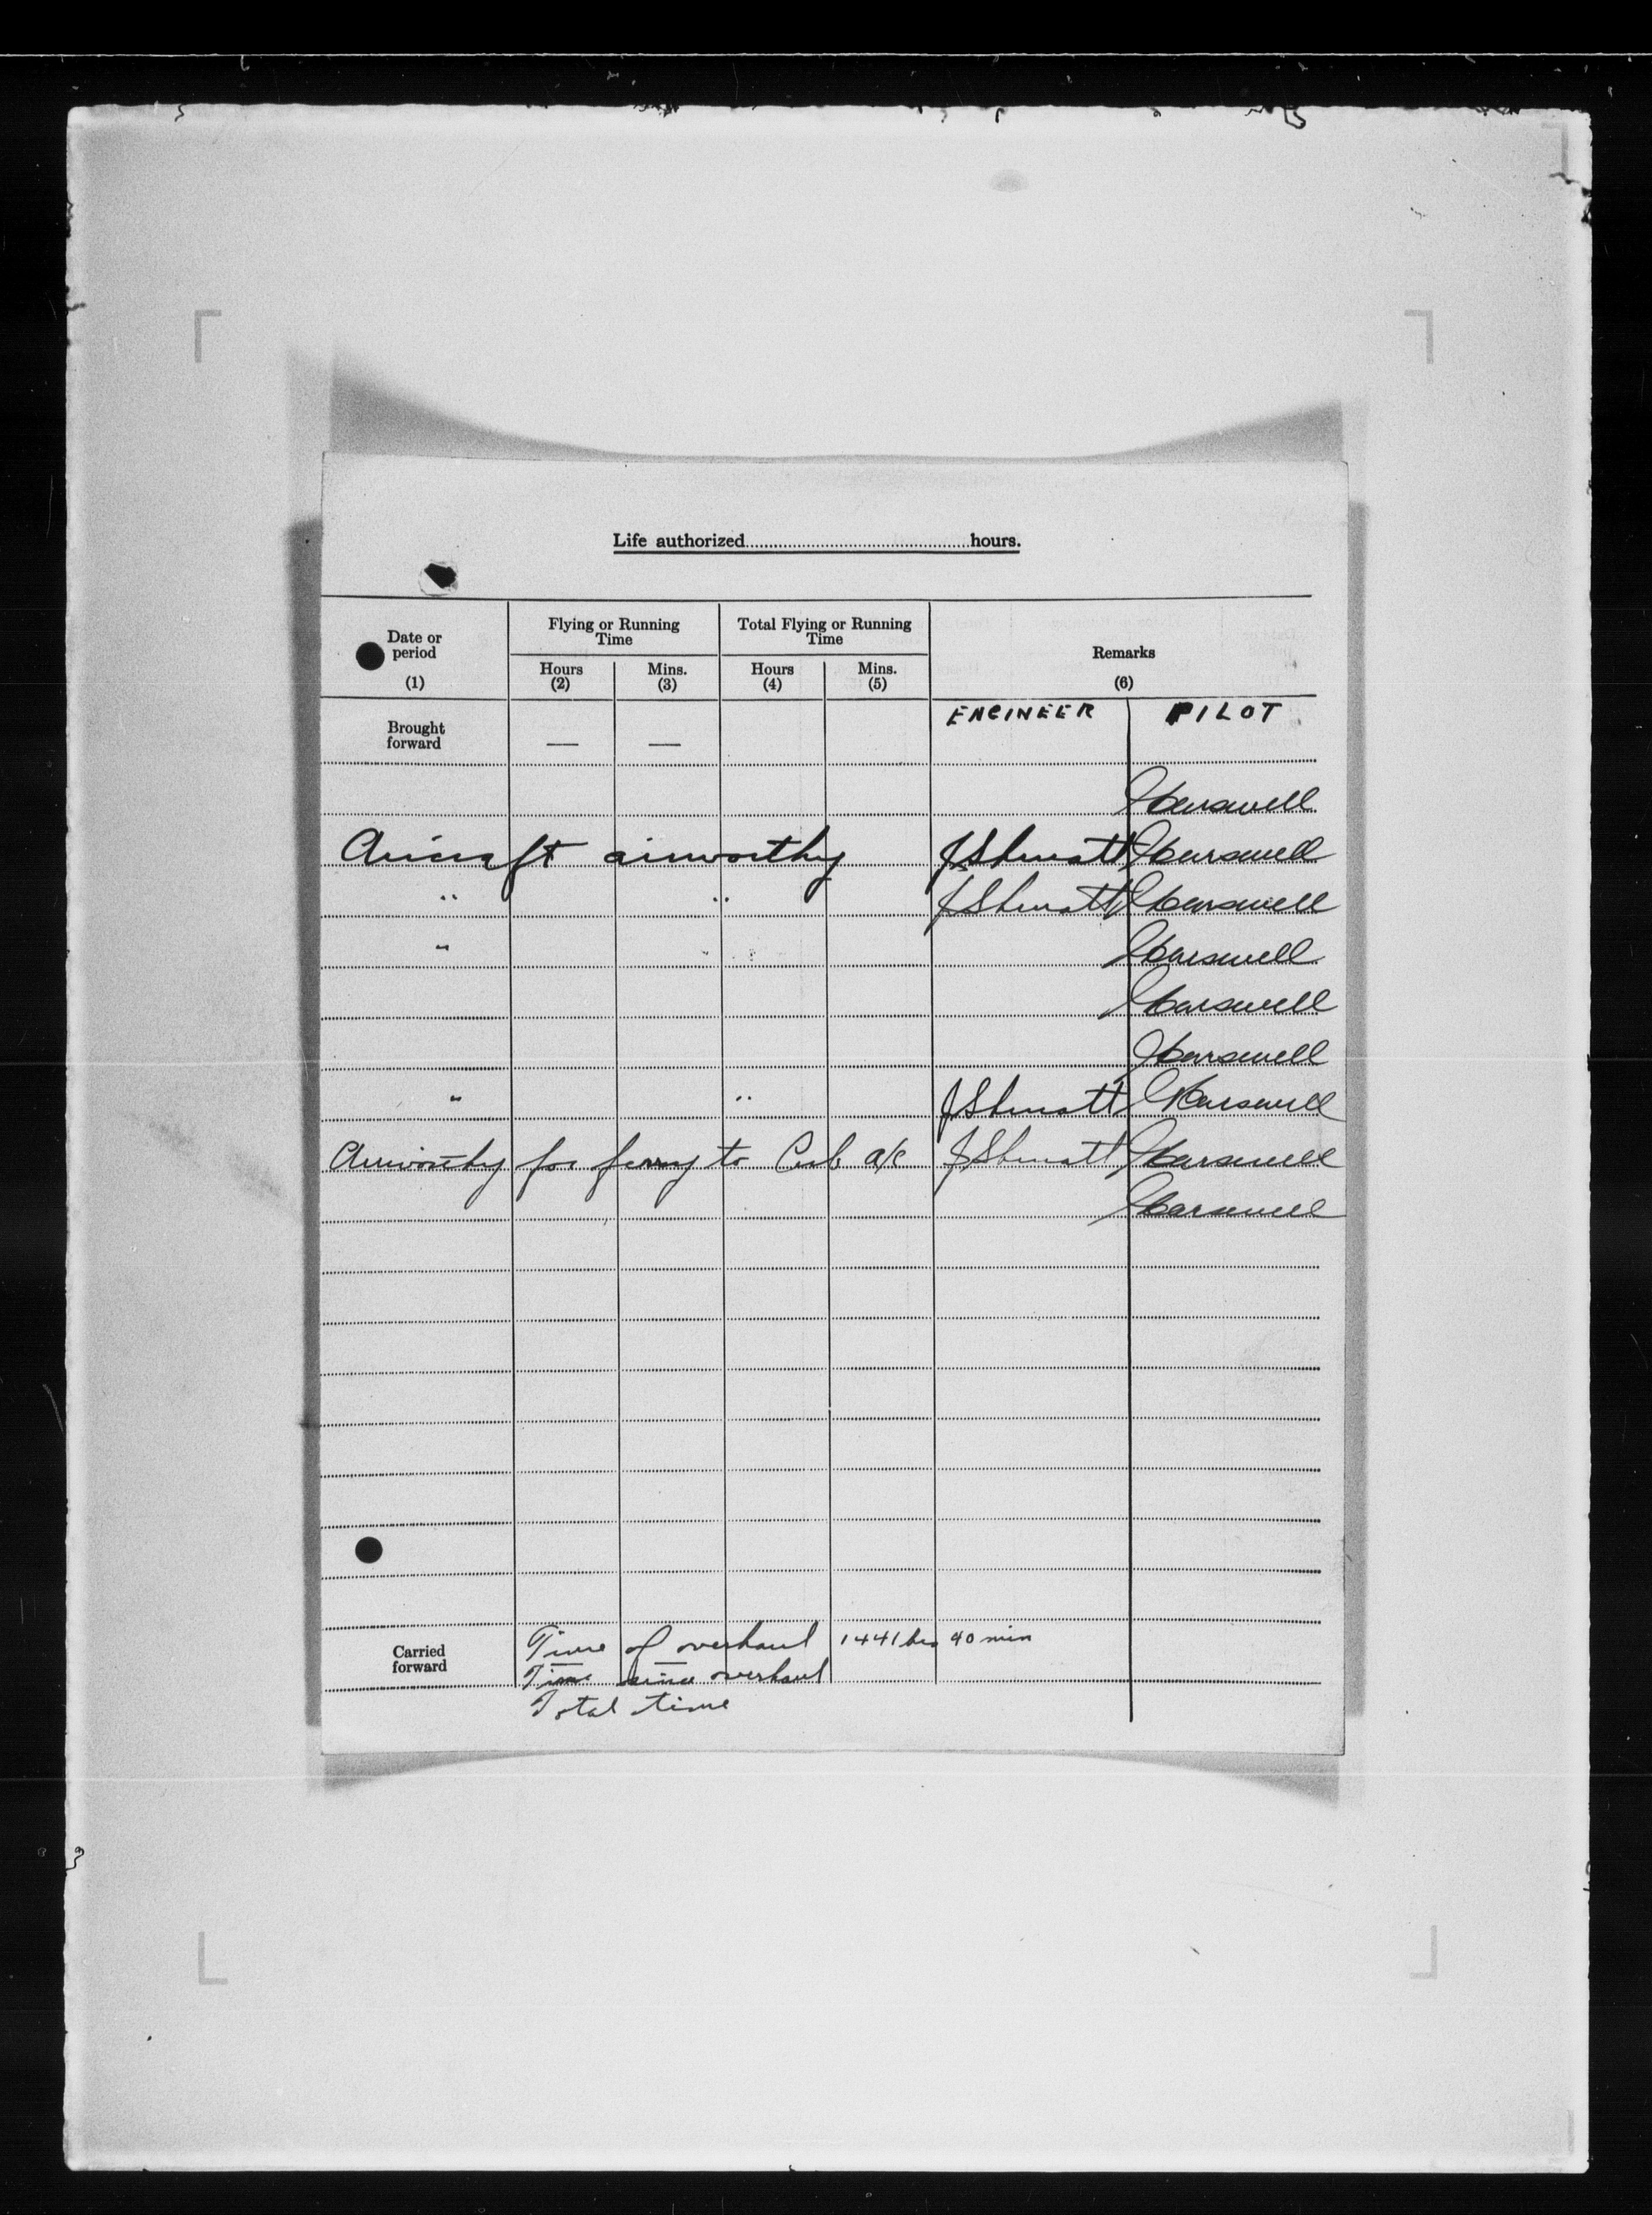 Life authorized........................................hours.
Date or period (1)
Flying or Running Time
Hours (2)
Mins. (3)
Total Flying or Running Time
Hours (4)
Mins. (5)
Remarks (6)
ENGINEER PILOT
Brought forward — —
Carswell
Aircraft airworthy Carswell
" " Carswell
" " Carswell
Carswell
Carswell
" " Carswell
Airworthy for ferry to Cub a/c Carswell
Carswell
Carried forward
Time of overhaul 1441 hrs 40 min
Time since overhaul
Total time